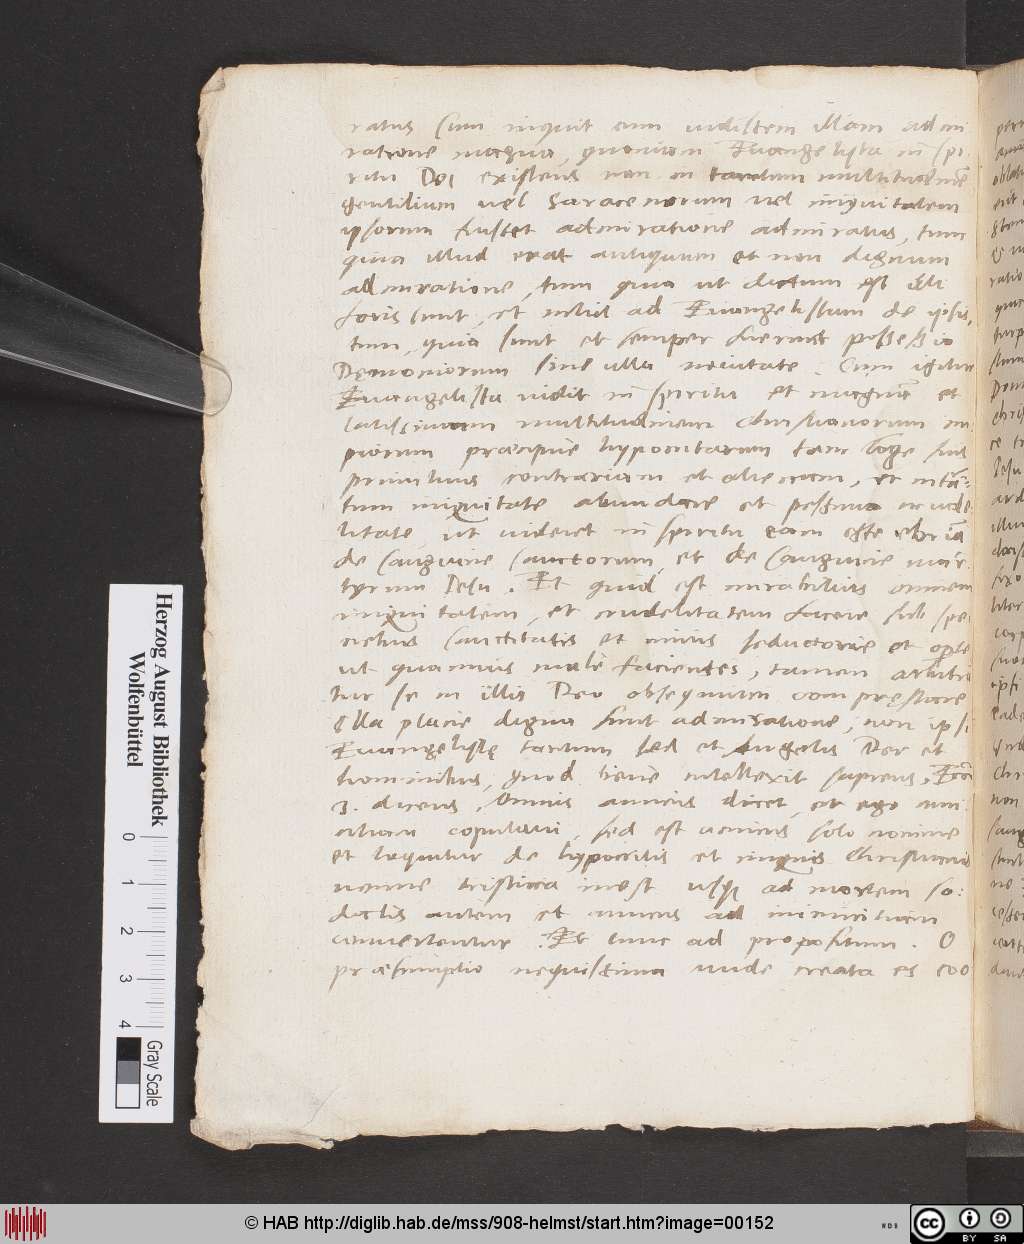 ratus sum inquit cum vidissem illam admi
ratione magna, quoniam Evangelista in spi
ritu Dei existens non in tantum multitudinē
gentilium vel Saracenorum vel iniquitatem
ipsorum fuisset admiratione admiratus, tum
quia illud erat antiquum et non dignum
admiratione, tum quia ut dictum est illi
foris sunt, et nihil ad Evangelistam de ipsis,
tum, quia sunt et semper fuerunt possessio
Dęmoniorum sine ulla novitate. Cum igitur
Evangelista vidit in spiritu et magnā et
latissimam multitudinem Christianorum im
piorum præcipue hypocritarum tam longe suis
primitivis contrariam et alienam, et in tā-
tum iniquitate abundare et pessima crude
litate, ut videret in spiritu eam esse ebriā
de sanguine sanctorum, et de sanguine mar-
tyrum Jesu. Et quid est mirabilius omnem
iniquitatem, et crudelitatem facere sub spe
ciebus sanctitatis et miris seductorie et
ut quamvis male facientes, tamen arbitrē
tur se in illis Deo obsequium compręstare
Illa plane digna sunt admiratione, non ipsi
Evangelistę tantum sed et Angelis Dei et
hominibus, quod bene intellexit sapiens,
3. dicens, Omnis amicus dicet, et ego ami
citiam copulavi, sed est amicus solo nomine
et loquitur de hypocritis et iniquis Christianis
nonne tristicia inest usq; ad mortem so:
dalis autem et amicus ad inimicitiam
convertentur. Et tunc ad propositum. O
præsumptio nequissima unde creata es coo
Herzog August Bibliothek
Wolfenbüttel
0 1 2 3 4
Gray Scale
© HAB http://diglib.hab.de/mss/908-helmst/start.htm?image=00152
WDB
cc BY SA